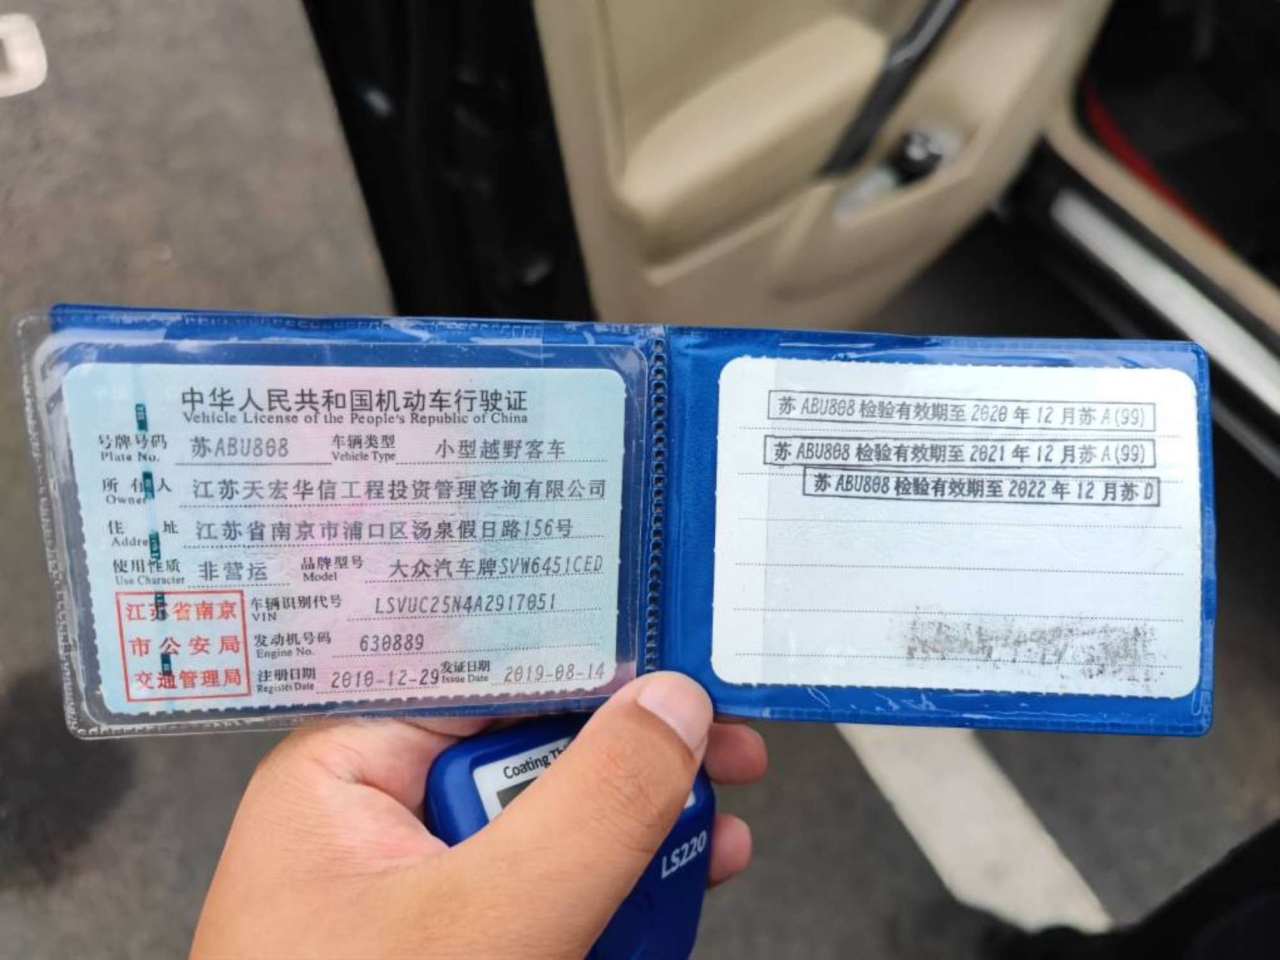 中华人民共和国机动车行驶证
Vehicle License of the People's Republic of China
号牌号码 苏ABU808 车辆类型 小型越野客车
Plate No. Vehicle Type
所有人 江苏天宏华信工程投资管理咨询有限公司
Owner
住址 江苏省南京市浦口区汤泉假日路156号
Address
使用性质 非营运 品牌型号 大众汽车牌SVW6451CED
Use Character Model
江苏省南京
市公安局
交通管理局
车辆识别代号 LSVUC25N4A2917051
VIN
发动机号码 630889
Engine No.
注册日期 2010-12-29 发证日期 2019-08-14
Register Date Issue Date
苏ABU808检验有效期至2020年12月苏A(99)
苏ABU808检验有效期至2021年12月苏A(99)
苏ABU808检验有效期至2022年12月苏D
Coating
LS220